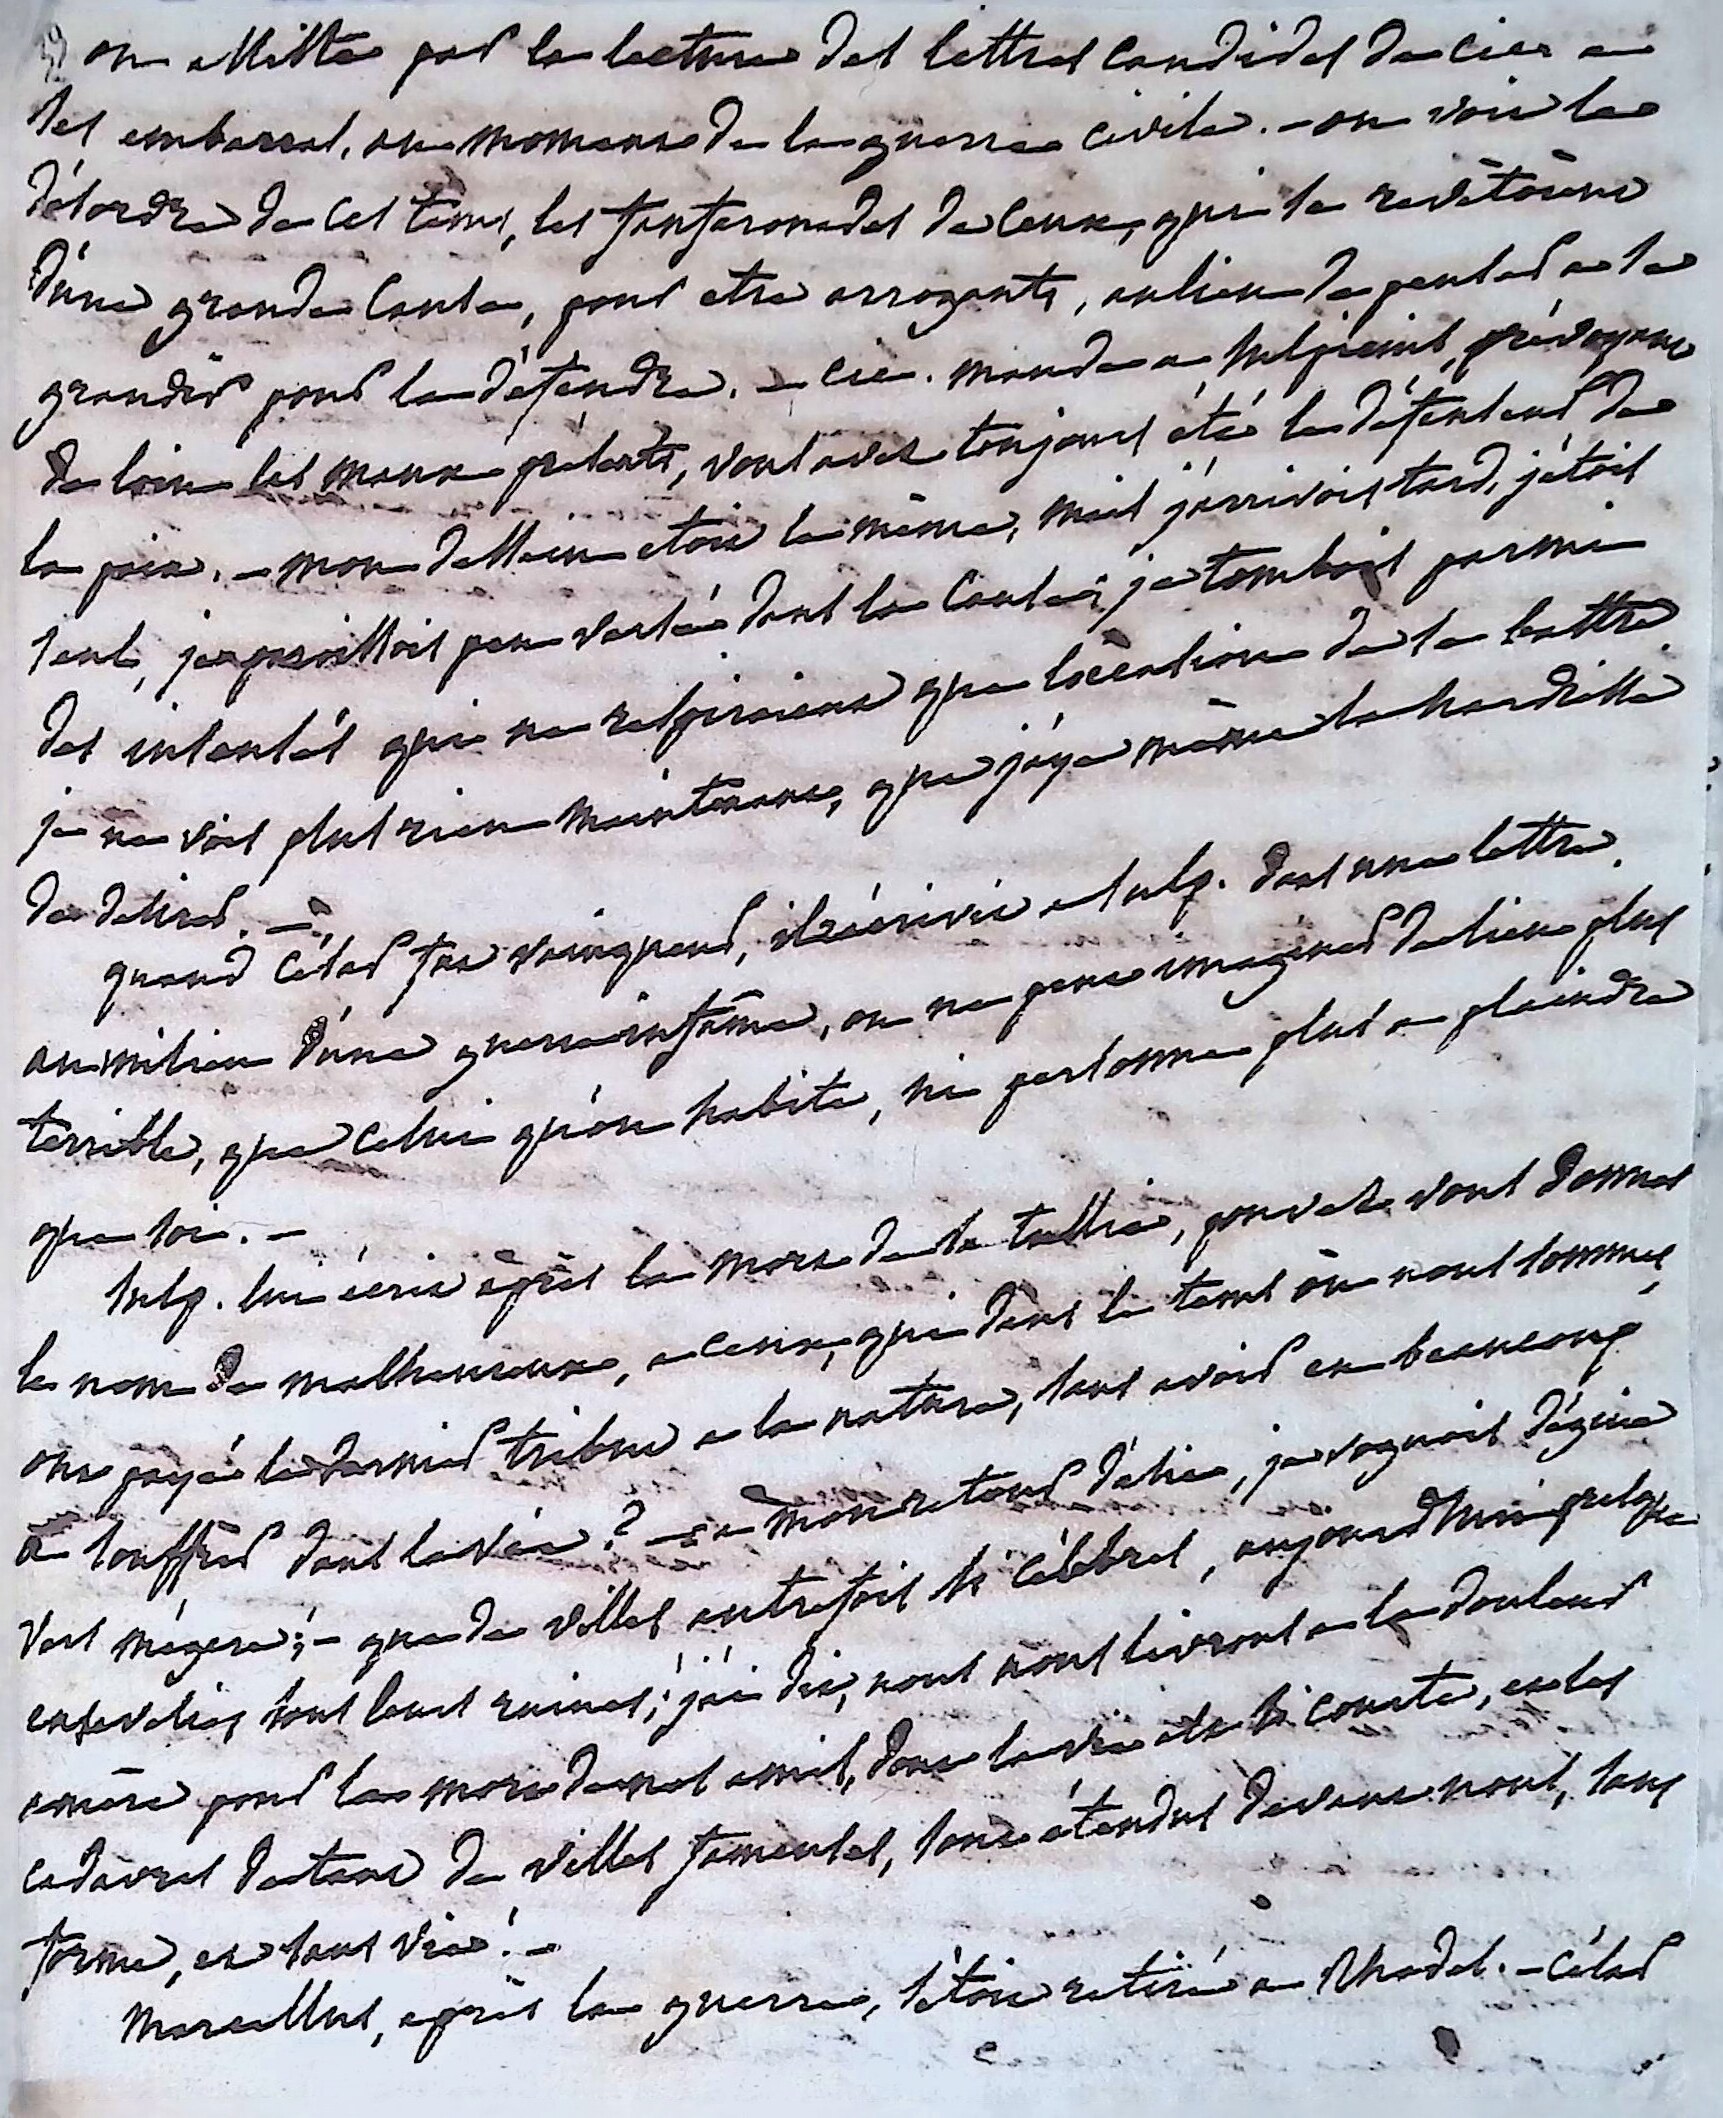 on assiste par la lecture des lettres candides de cicer a
ses embarras, au moment de la guerre civile. – on voit le
désordre de ces tems, les fanfaronades de ceux, qui se revêtoient
d'une grande cause, pour etre arrogants, aulieu de penser a se
grandir pour la défendre. – cic. mande a sulpicius, prévoyant
de loin les maux présents, vous avez toujours été le défenseur de
la paix. – mon dessein etoit le même, mais j'arrivois tard, j'étois
seul, je paroissois peu versé dans la cause, je tombois parmi
des insensés qui ne respiroient que l'occasion de se battre
je ne vois plus rien maintenant, que j'aye même la hardiesse
de désirer. –
quand César fut vainqueur, il écrivit a sulp. dans une lettre.
au milieu d'une guerre infâme, on ne peut imaginer de lieu plus
terrible, que celui qu'on habite, ni personne plus a plaindre
que soi. –
sulp. lui écrit après la mort de sa tullie, pouvez vous donner
le nom de malheureux, a ceux, qui dans le tems où nous sommes,
ont payé le dernier tribut a la nature, sans avoir eu beaucoup
a souffrir dans la vie ? – a mon retour d'asie, je voguois d'égine
vers mégere ; – que de villes autrefois si célèbres, aujourdhui presque
ensevelies sous leurs ruines ; j'ai dit, nous nous livrons a la douleur
amère pour la mort de nos amis, dont la vie est si courte, et les
cadavres de tant de villes fameuses, sont étendus devant nous, sans
forme, et sans vie ! –
Marcellus, après la guerre, s'étoit retiré a Rhodes. – César